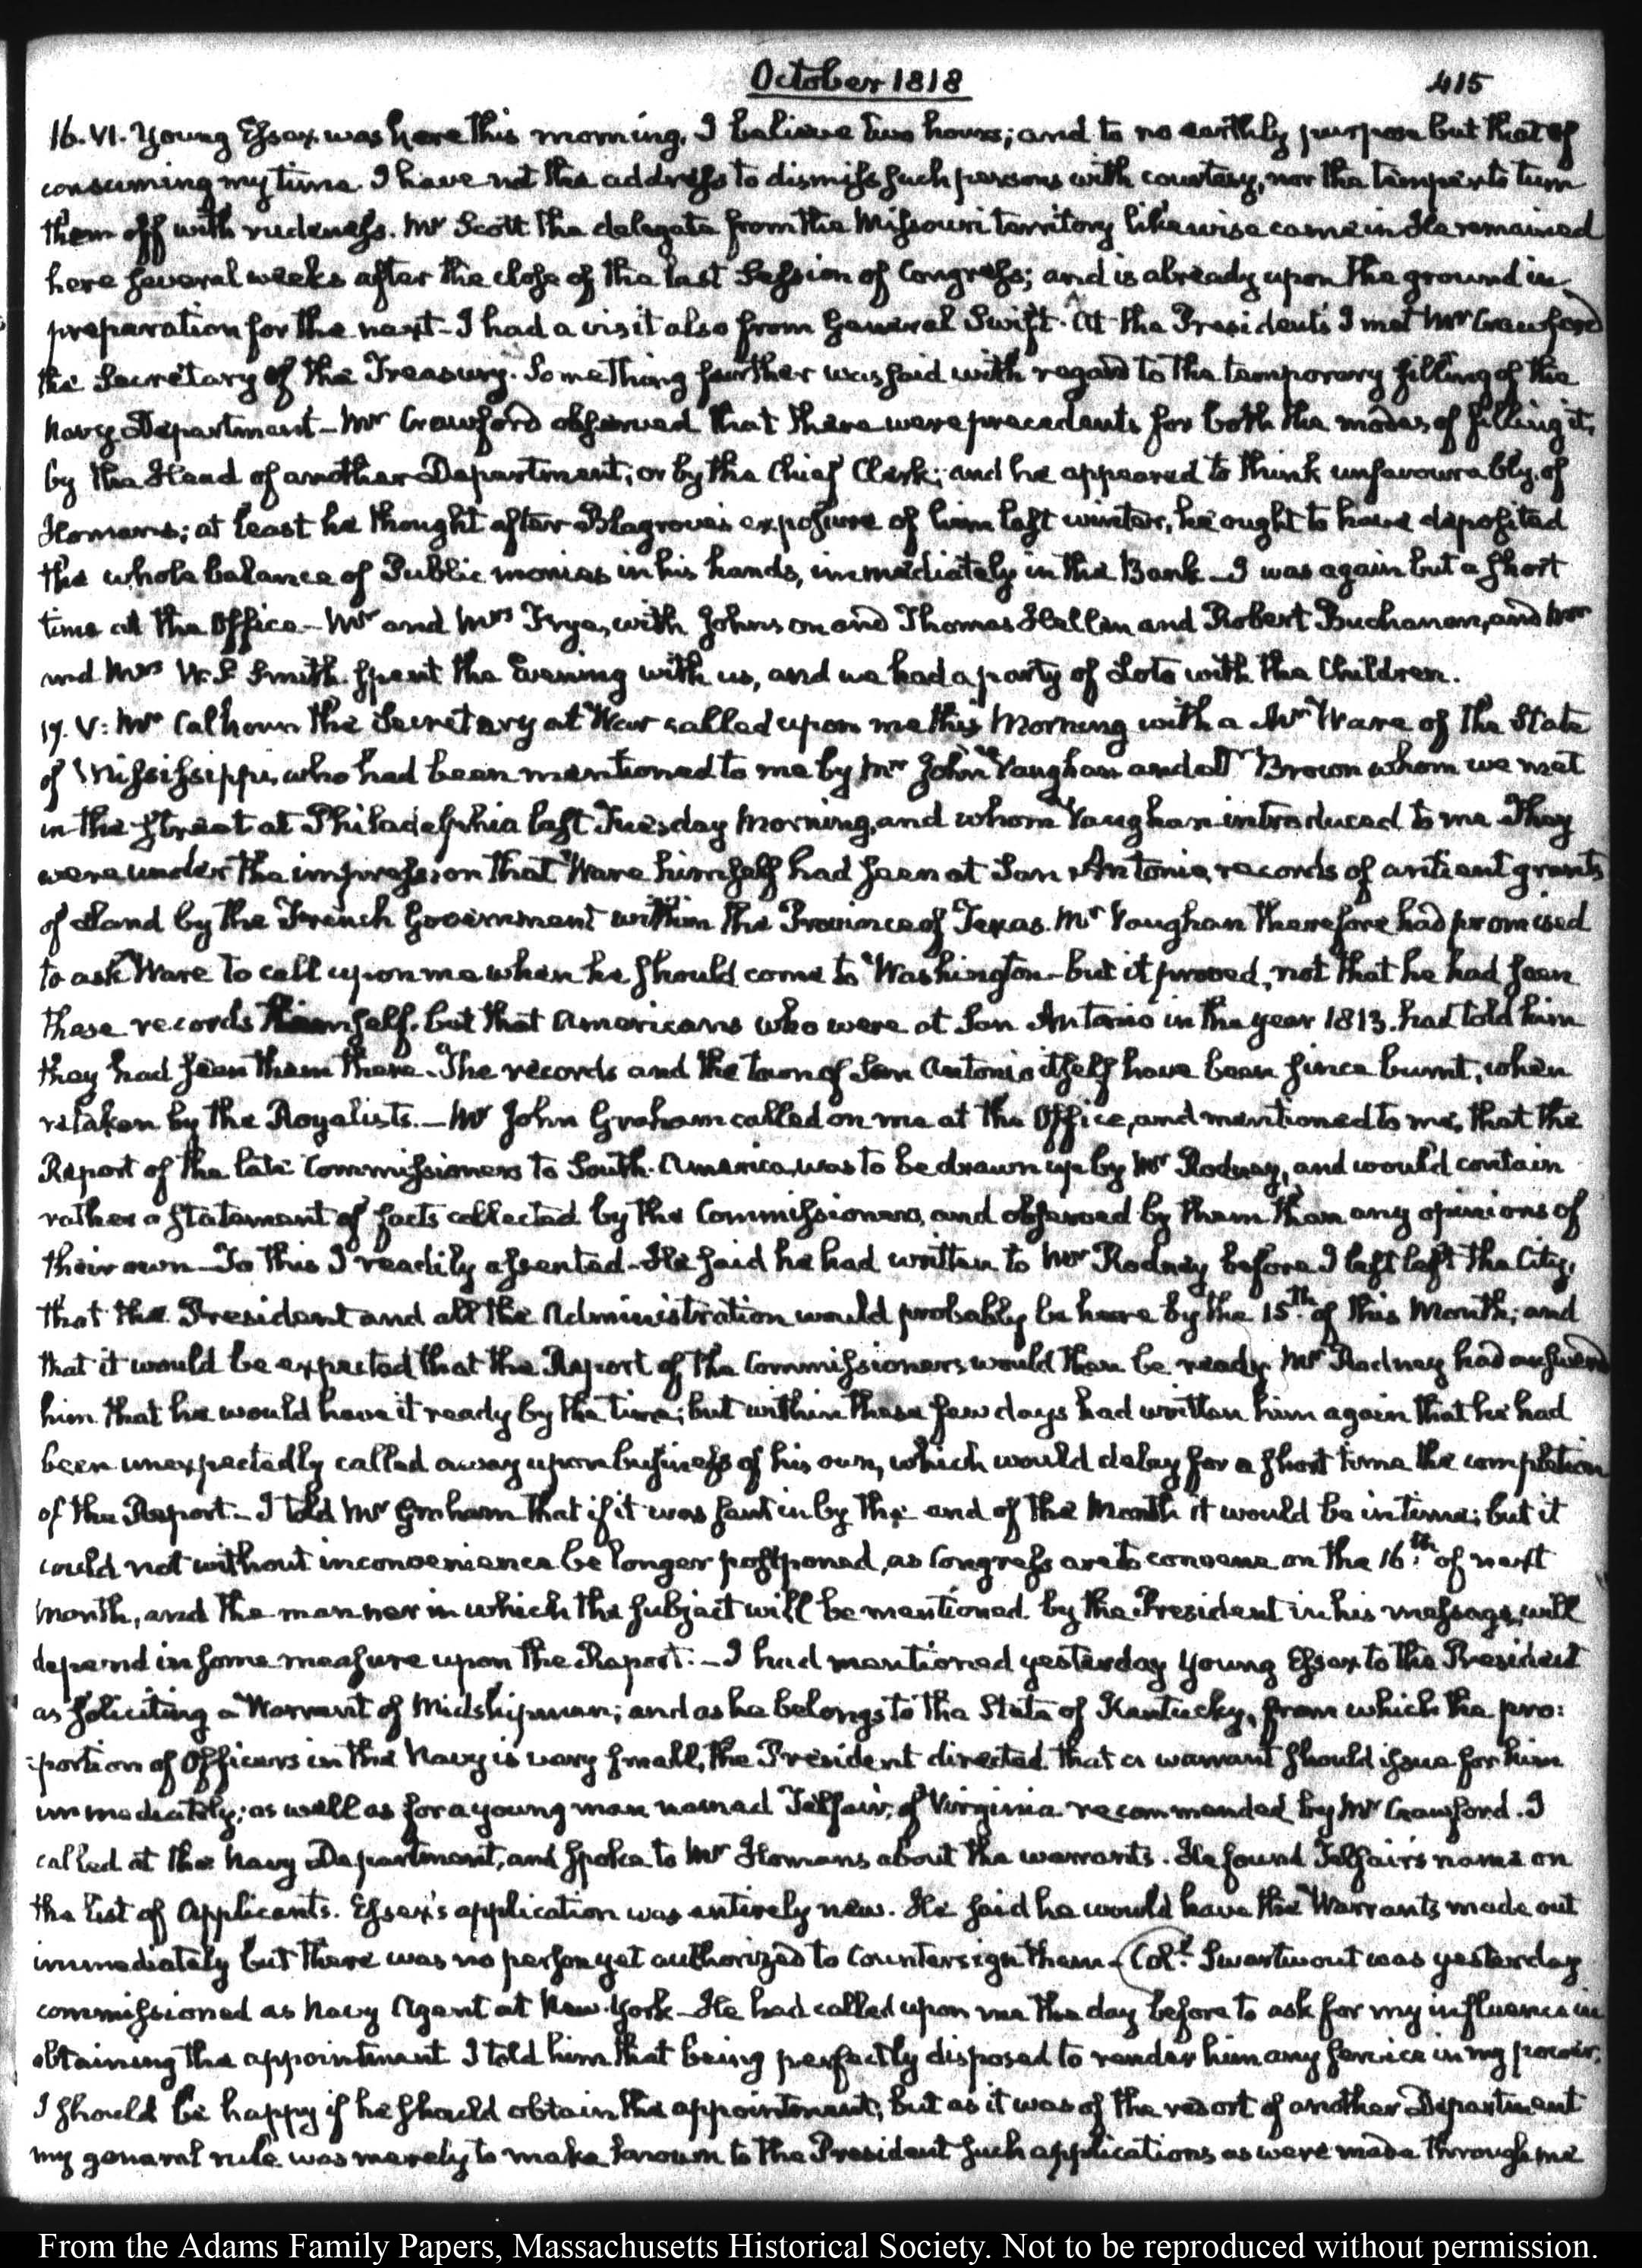 October 1818
415
16. VI. Young Essex was here this morning, I believe two hours; and to no earthly purpose but that of
consuming my time. I have not the address to dismiss such persons with courtesy, nor the temper to turn
them off with rudeness. Mr Scott the delegate from the Missouri territory likewise came in He remained
here several weeks after the close of the last Session of Congress; and is already upon the ground in
preparation for the next- I had a visit also from General Swift. At the President's I met Mr Crawford
the Secretary of the Treasury. Something further was said with regard to the temporary filling of the
Navy Department- Mr Crawford observed that there were precedents for both the modes of filling it,
by the Head of another Department; or by the Chief Clerk; and he appeared to think unfavourably of
Homans; at least he thought after Blagrove's exposure of him last winter, he ought to have deposited
the whole balance of Public monies in his hands, immediately in the Bank- I was again but a short
time at the Office- Mr and Mrs Frye, with Johnson and Thomas Hellen and Robert Buchanan, and Mr
and Mrs W. S. Smith spent the Evening with us, and we had a party of Loto with the Children.
17. V: Mr Calhoun the Secretary at War called upon me this Morning with a Mr Ware of the State
of Mississippi, who had been mentioned to me by Mr John Vaughan and a Mr Brown whom we met
in the street at Philadelphia last Tuesday Morning, and whom Vaughan introduced to me They
were under the impression that Ware himself had seen at San Antonio, records of antient grants
of Land by the French Government within the Province of Texas. Mr Vaughan therefore had promised
to ask Ware to call upon me when he should come to Washington- but it proved, not that he had seen
these records himself, but that Americans who were at San Antonio in the year 1813. had told him
they had seen them there. The records and the town of San Antonio itself have been since burnt, when
retaken by the Royalists.- Mr John Graham called on me at the Office, and mentioned to me, that the
Report of the late Commissioners to South-America, was to be drawn up by Mr Rodney, and would contain
rather a statement of facts collected by the Commissioners, and observed by them than any opinions of
their own- To this I readily assented- He said he had written to Mr Rodney before I left left the City,
that the President and all the Administration would probably be here by the 15th of this Month; and
that it would be expected that the Report of the Commissioners would then be ready Mr Rodney had answered
him that he would have it ready by the time; but within these few days had written him again that he had
been unexpectedly called away upon business of his own, which would delay for a short time the completion
of the Report.- I told Mr Graham that if it was sent in by the end of the Month it would be in time; but it
could not without inconvenience be longer postponed, as Congress are to convene on the 16th of next
Month, and the manner in which the subject will be mentioned by the President in his message, will
depend in some measure upon the Report.- I had mentioned yesterday young Essex to the President
as soliciting a Warrant of Midshipman; and as he belongs to the State of Kentucky, from which the pro:
:portion of Officers in the Navy is very small, the President directed that a warrant should issue for him
immediately; as well as for a young man named Telfair, of Virginia recommended by Mr Crawford. I
called at the Navy Department, and spoke to Mr Homans about the warrants. He found Telfair's name on
the list of Applicants. Essex's application was entirely new. He said he would have the Warrants made out
immediately but there was no person yet authorized to Countersign them- Col. Swartwout was yesterday
commissioned as Navy Agent at New-York- He had called upon me the day before to ask for my influence in
obtaining the appointment I told him that being perfectly disposed to render him any service in my power,
I should be happy if he should obtain the appointment; but as it was of the resort of another Department
my general rule was merely to make known to the President such applications as were made through me
From the Adams Family Papers, Massachusetts Historical Society. Not to be reproduced without permission.